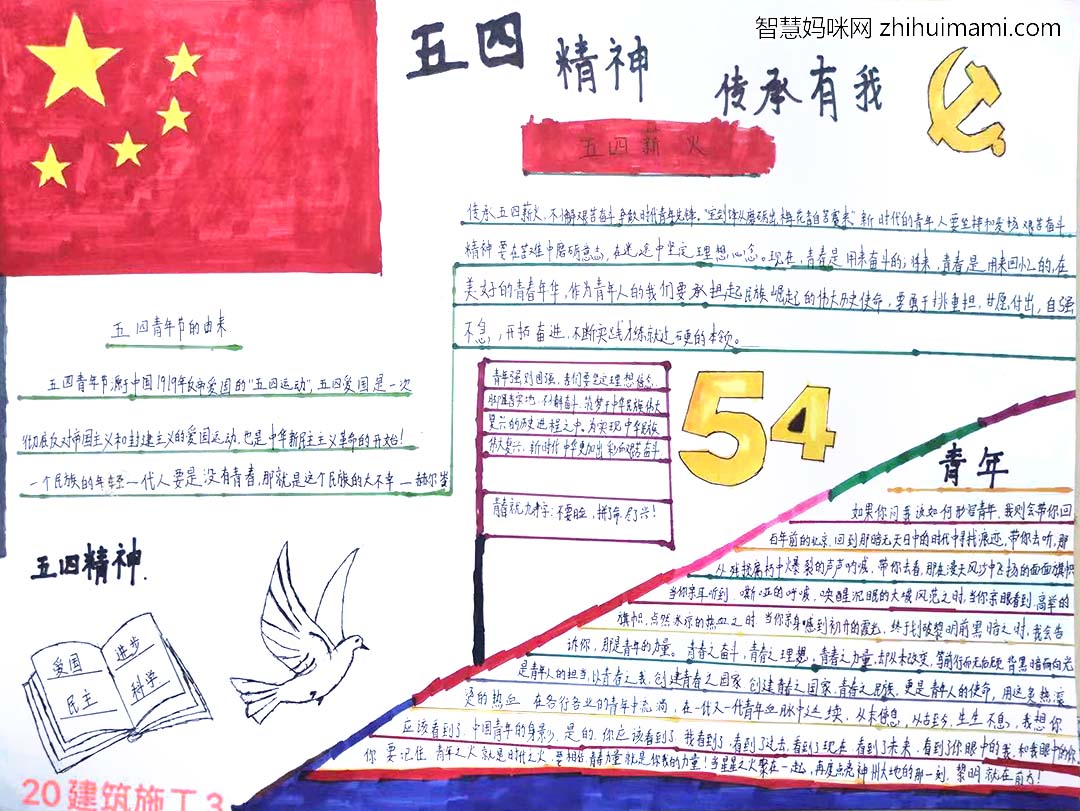 智慧妈咪网 zhihuimami.com
五四 精神 传承有我
五四薪火
传承五四薪火,不懈艰苦奋斗 争做时代青年先锋。"宝剑锋从磨砺出,梅花香自苦寒来"新时代的青年人要坚持和发扬艰苦奋斗
精神 要在苦难中磨砺意志,在迷途中坚定理想信念。现在,青春是用来奋斗的;将来,青春是用来回忆的,在
美好的青春年华,作为青年人的我们要承担起民族崛起的伟大历史使命,要勇于挑重担,甘愿付出,自强
不息,开拓奋进,不断实践才练就过硬的本领。
五四青年节的由来
五四青年节源于中国1919年反帝爱国的"五四运动",五四爱国是一次
彻底反对帝国主义和封建主义的爱国运动,也是中华新民主主义革命的开始!
一个民族的年轻一代人要是没有青春,那就是这个民族的大不幸 — 赫尔岑
青年强则国强,我们要坚定理想信念,
脚踏实地,不懈奋斗,筑梦于中华民族伟大
复兴的历史进程之中,为实现中华民族
伟大复兴,新时代中华更加出彩而艰苦奋斗
青春就九个字:不要脸,拼了命,尽了兴!
54
青年
如果你问我该如何形容青年,我则会带你回
百年前的北京,回到那暗无天日中的时代中寻找痕迹,带你去听,那
中爆裂的声声呐喊,带你去看,那在漫天风沙中飞扬的面面旗帜
当你亲耳听到,嘶哑的呼喊,唤醒沉眠的大 之时,当你亲眼看到,高举的
旗帜,点燃冰凉的热血之时,当你亲身感到初升的霞光,终于划破黎明前黑暗之时,我会告
诉你,那是青年的力量。青春之奋斗,青春之理想,青春之力量 却从未改变,
是青年人的担当,以青春之我,创建青春之国家 创建青春之国家,青春之民族,更是青年人的使命,用这
烫的热血 在各行各业的青年中流淌,在一代又一代青年血脉中 从未停息,从古至今,生生不息,我想你
应该看到了,中国青年的身影,是的,你应该看到了,我看到了,看到了过去,看到了现在 看到了未来,看到了你眼中的我 和我眼中的你
你要记住,青年之火就是时代之火,要相信,青春力量就是你我的力量!当星星之火聚在一起,再度点亮神州大地的那一刻,黎明就在前方!
五四精神.
爱国
民主
进步
科学
20建筑施工3